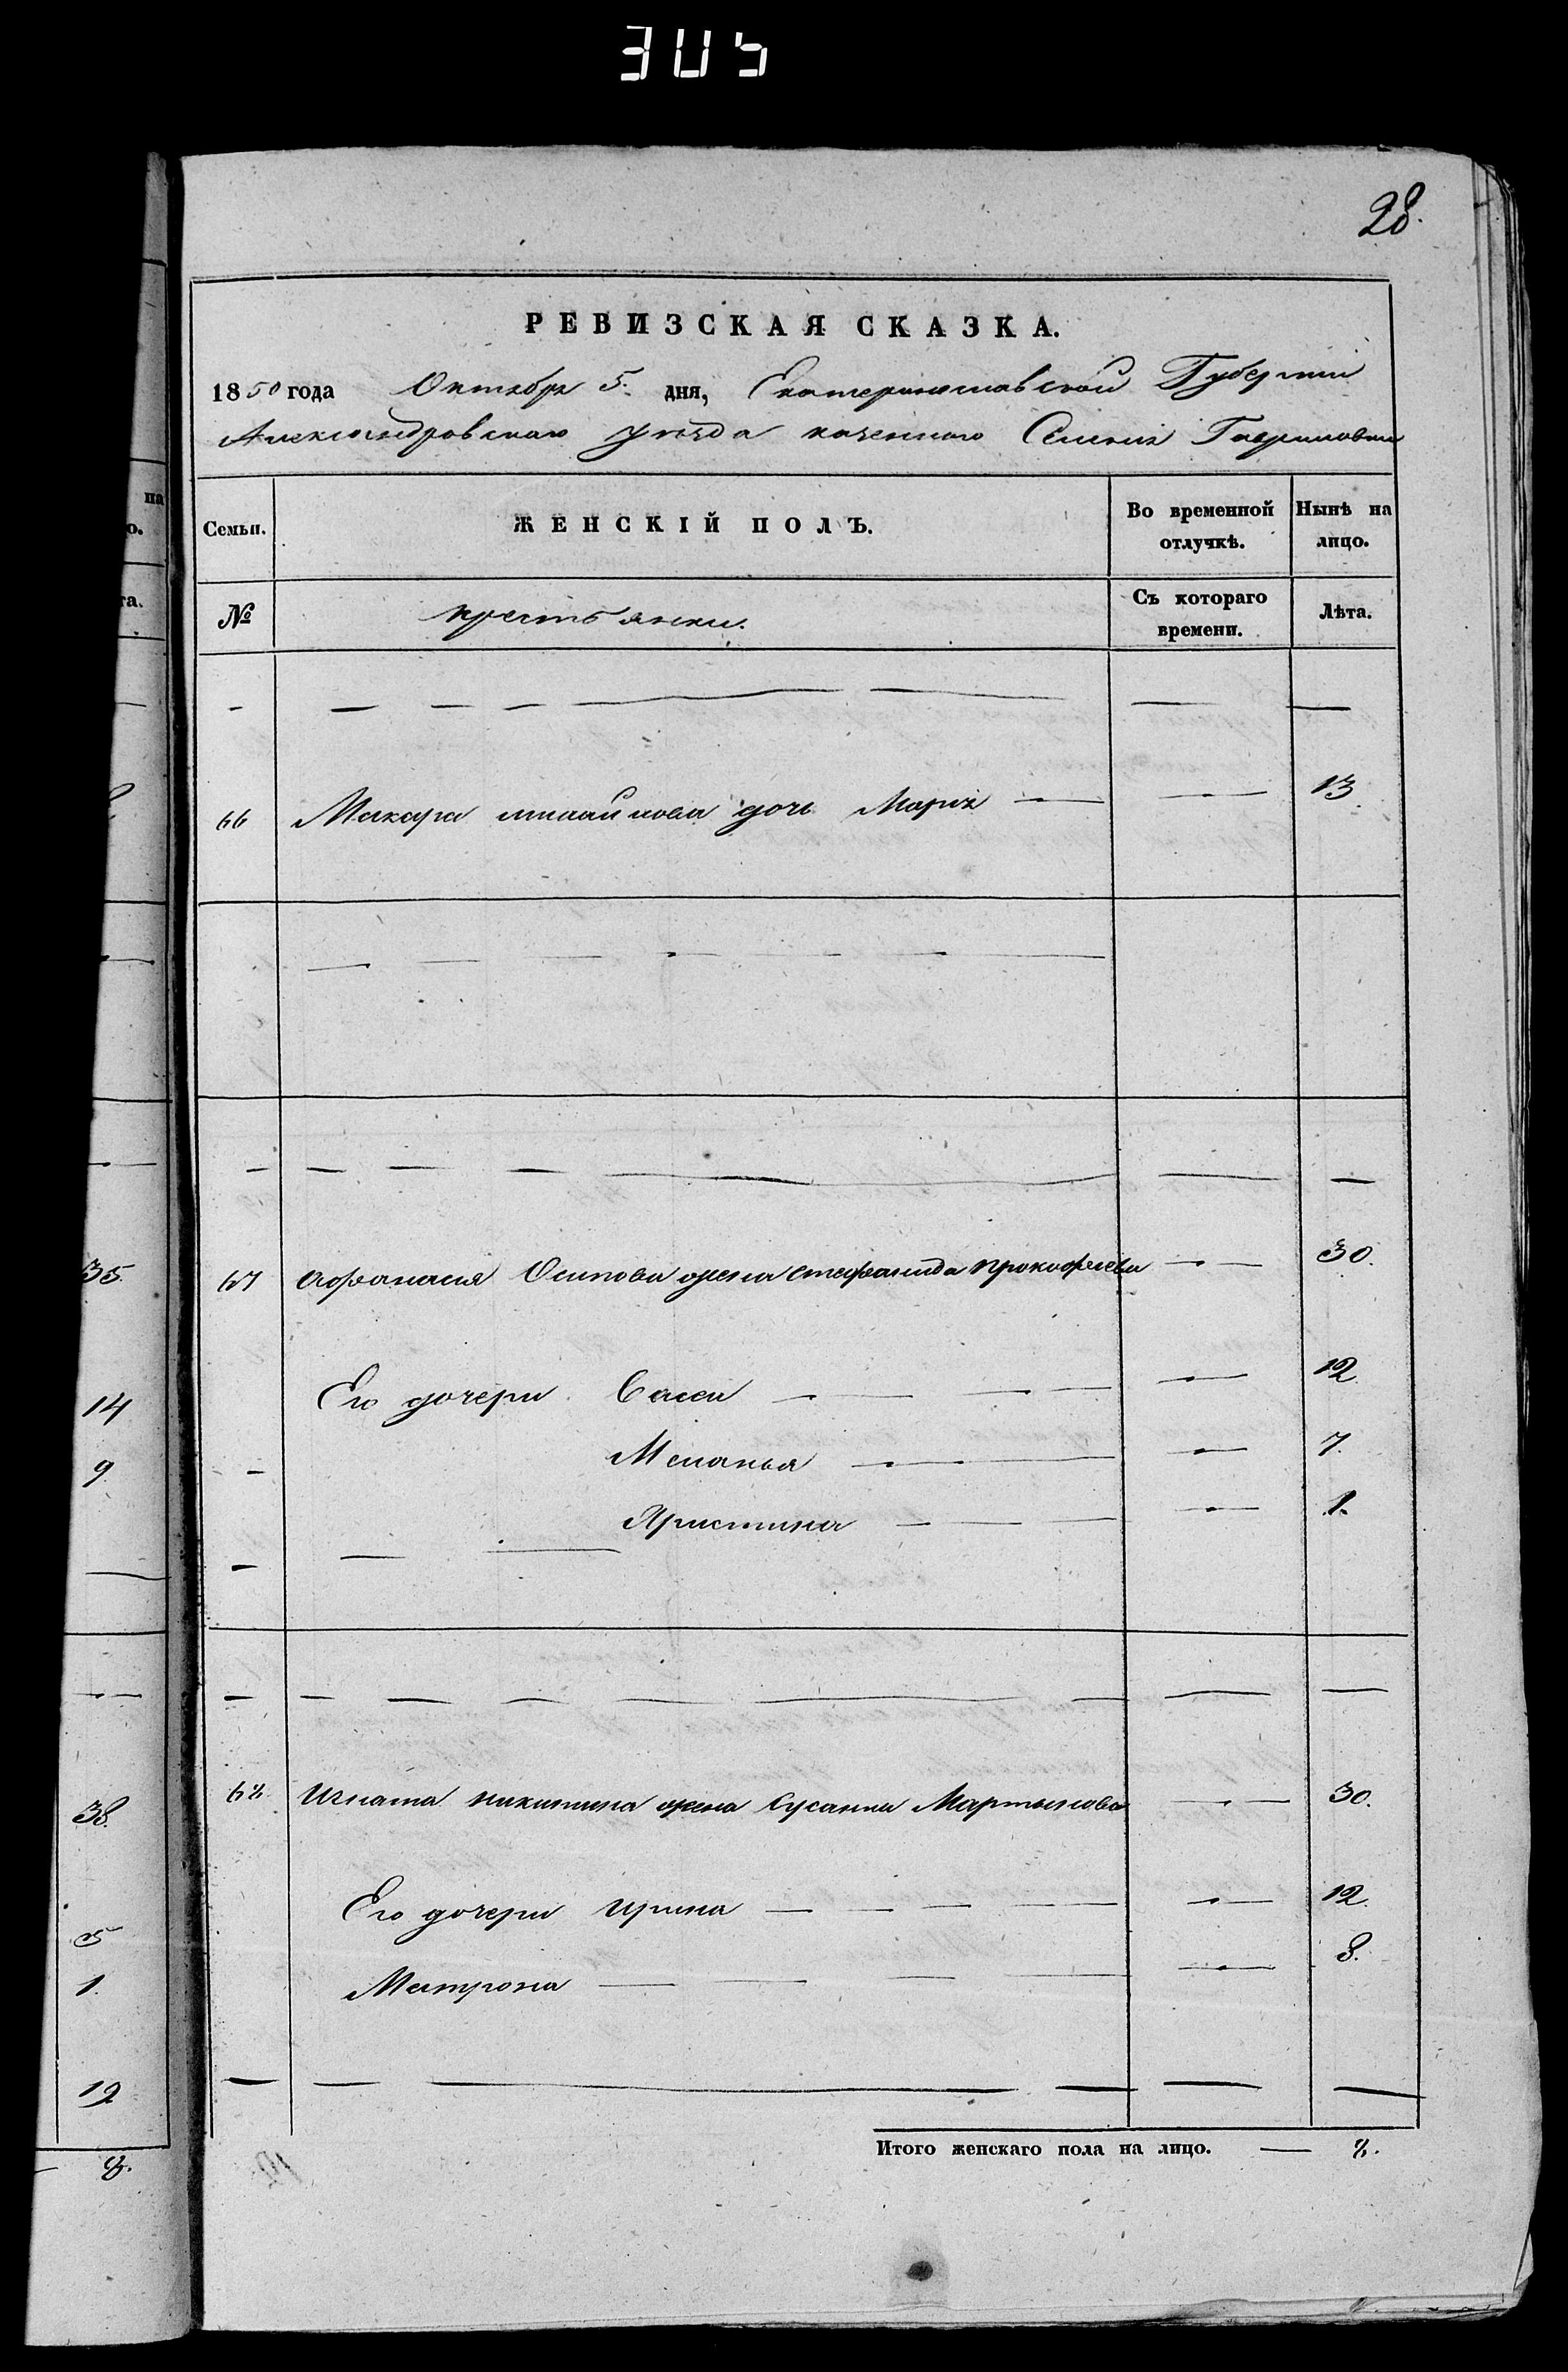 305
28.
РЕВИЗСКАЯ СКАЗКА.
1850 года Октября 5. дня, Екатеринославской Губернии
Александровскаго уезда казенного Селения Гавриловки
на
о.
Семьи. ЖЕНСКІЙ ПОЛЪ. Во временной отлучкѣ. Нынѣ на лицо.
та.
№ крестьянки. Съ котораго времени. Лѣта.
66 Макара михайлова дочь Мария — — 13
35. 67 Афанасия Осипова жена Стефанида Прокофиева — 30.
14 Его дочери Васса — — 12
9 Меланья — — 7.
Христина — — 1.
38. 68. Игната никитина жена Сусанна Мартынова — 30.
5 Его дочери Ирина — — 12.
1. Матрона — — 8.
19
8. Итого женскаго пола на лицо. — 8.